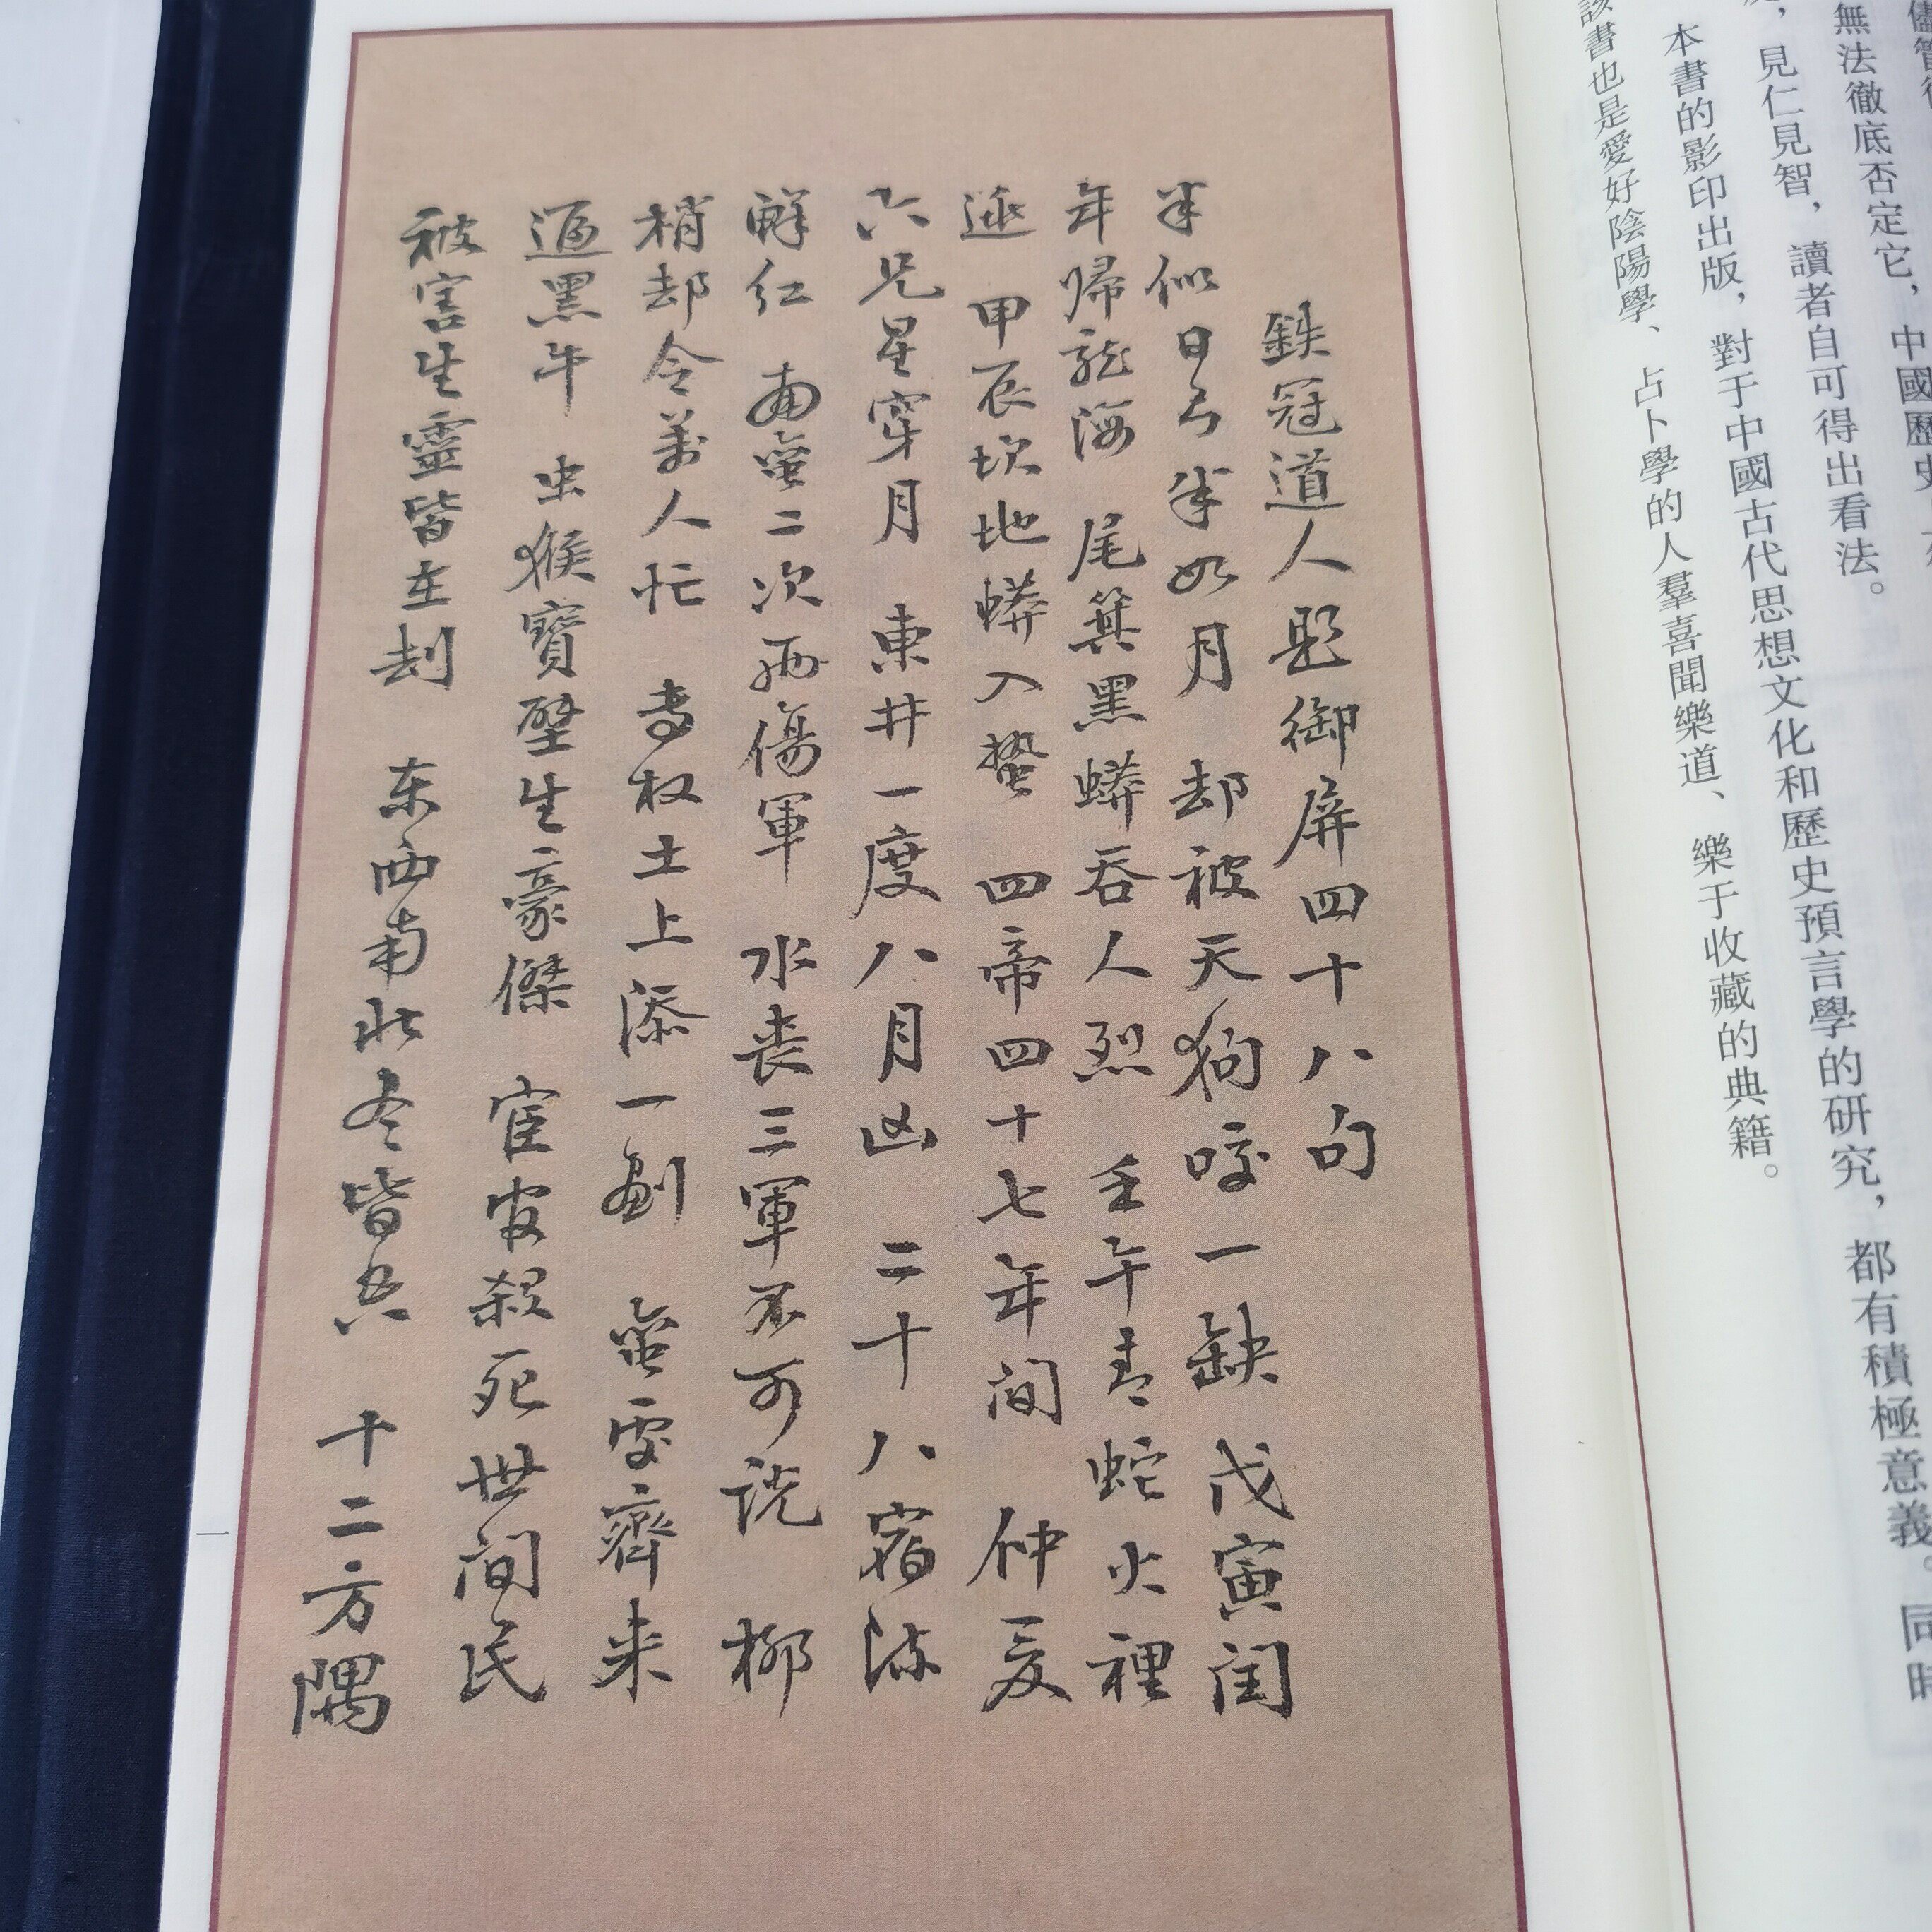 無法徹底否定它，中國歷史
，見仁見智，讀者自可得出看法。
本書的影印出版，對于中國古代思想文化和歷史預言學的研究，都有積極意義。同時
該書也是愛好陰陽學、占卜學的人羣喜聞樂道、樂于收藏的典籍。
鉄冠道人題御屏四十八句
半似日兮半如月 却被天狗咬一缺 戊寅闰
年歸龍海 尾箕黑蟒吞人烈 壬午青蛇火裡
遁 甲辰坎地蟒入蟄 四帝四十七年间 仲夏
六兄星穿月 東井一度八月凶 二十八宿沵
解紅 南蛮二次两傷軍 水丧三軍不可说 柳
梢却令萬人忙 专权士上添一劉 蛮雯齊来
逼黑牛 虫猴寶壁生豪傑 宦官殺死世间民
被害生靈皆在刦 东西南北冬皆兴 十二方隅
一